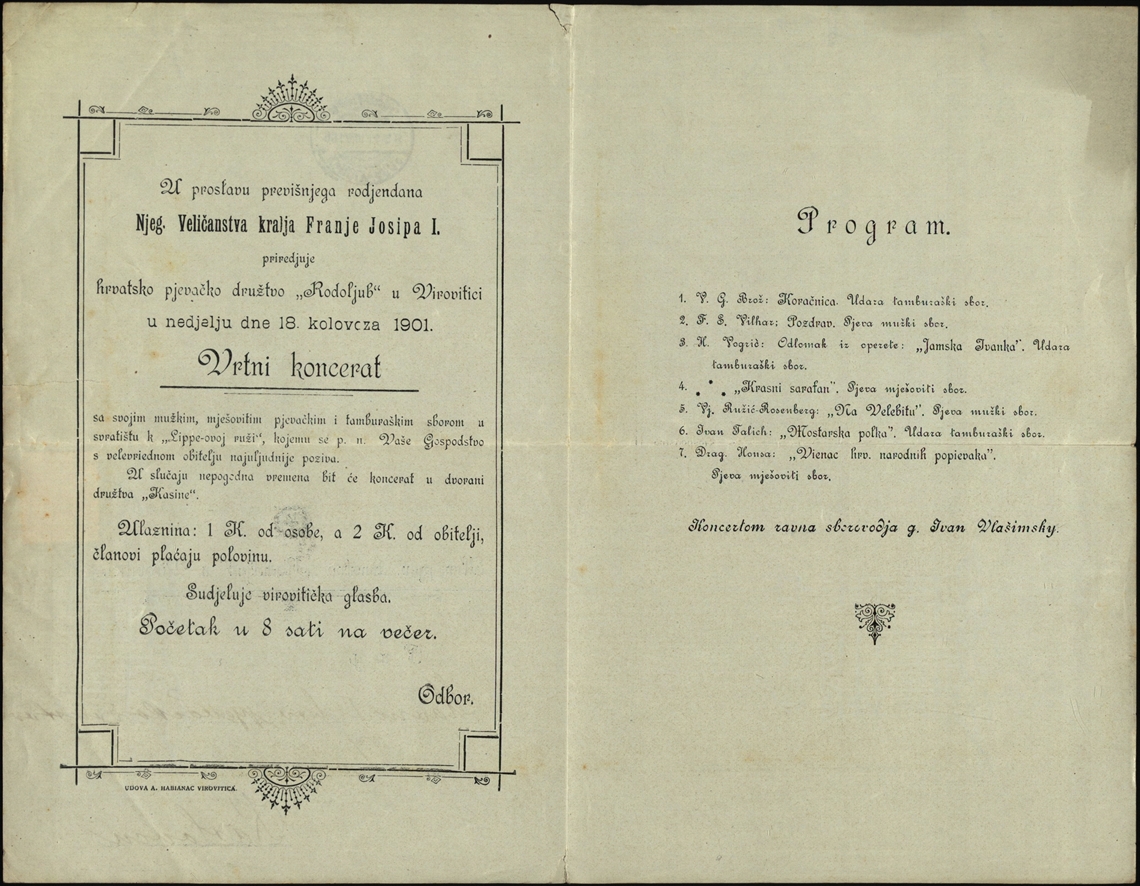 U proslavu previšnjega rodjendana
Njeg. Veličanstva kralja Franje Josipa I.
priredjuje
hrvatsko pjevačko družtvo „Rodoljub“ u Virovitici
u nedjelju dne 18. kolovoza 1901.
Vrtni koncerat
sa svojim mužkim, mješovitim pjevačkim i tamburaškim sborom u
svratištu k „Lippe-ovoj ruži“, kojemu se p. n. Vaše Gospodstvo
s velevriednom obitelju najuljudnije poziva.
U slučaju nepogodna vremena bit će koncerat u dvorani
družtva „Kasine“.
Ulaznina: 1 K. od osobe, a 2 K. od obitelji,
članovi plaćaju polovinu.
Sudjeluje virovitička glasba.
Početak u 8 sati na večer.
Odbor.
UDOVA A. HABIANAC VIROVITICA.
Program.
1. V. G. Brož: Koračnica. Udara tamburaški sbor.
2. F. S. Vilhar: Pozdrav. Pjeva mužki sbor.
3. H. Vogrič: Odlomak iz operete: „Jamska Ivanka“. Udara
tamburaški sbor.
4. * * * „Krasni sarafan“. Pjeva mješoviti sbor.
5. Vj. Ružić-Rosenberg: „Na Velebitu“. Pjeva mužki sbor.
6. Ivan Talich: „Mostarska polka“. Udara tamburaški sbor.
7. Drag. Honsa: „Vienac hrv. narodnih popievaka“.
Pjeva mješoviti sbor.
Koncertom ravna sborovodja g. Ivan Vlašimsky.